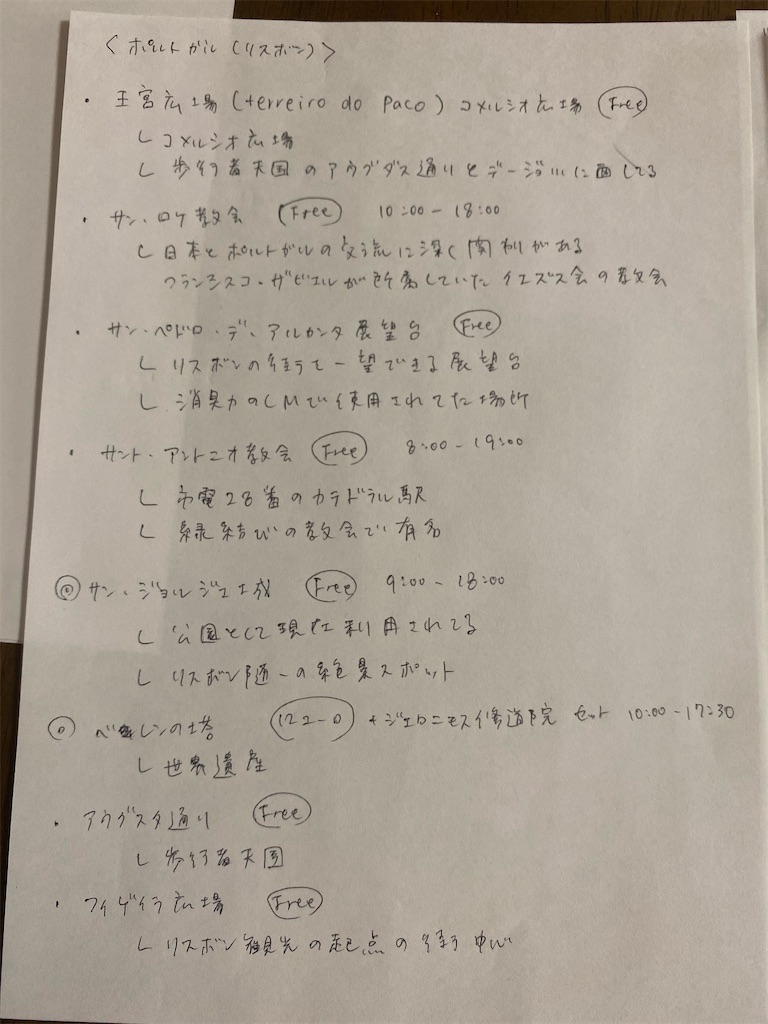 <ポルトガル(リスボン)>
・王宮広場(terreiro do paco) コメルシオ広場 Free
└ コメルシオ広場
└ 歩行者天国のアウグダス通りとテージョ川に面してる
・サン・ロケ教会 Free 10:00-18:00
└ 日本とポルトガルの交流に深く関わりがある
フランシスコ・ザビエルが所属していたイエズス会の教会
・サン・ペドロ・デ・アルカンタ展望台 Free
└ リスボンの街を一望できる展望台
└ 消臭力のCMで使用されてた場所
・サント・アントニオ教会 Free 8:00-19:00
└ 市電28番のカテドラル駅
└ 縁結びの教会で有名
◎サン・ジョルジェ城 Free 9:00-18:00
└ 公園として現在利用されてる
└ リスボン随一の絶景スポット
◎ベレンの塔 12ユーロ +ジェロニモス修道院 セット 10:00-17:30
└ 世界遺産
・アウグスタ通り Free
└ 歩行者天国
・フィゲイラ広場 Free
└ リスボン観光の起点の街 中心